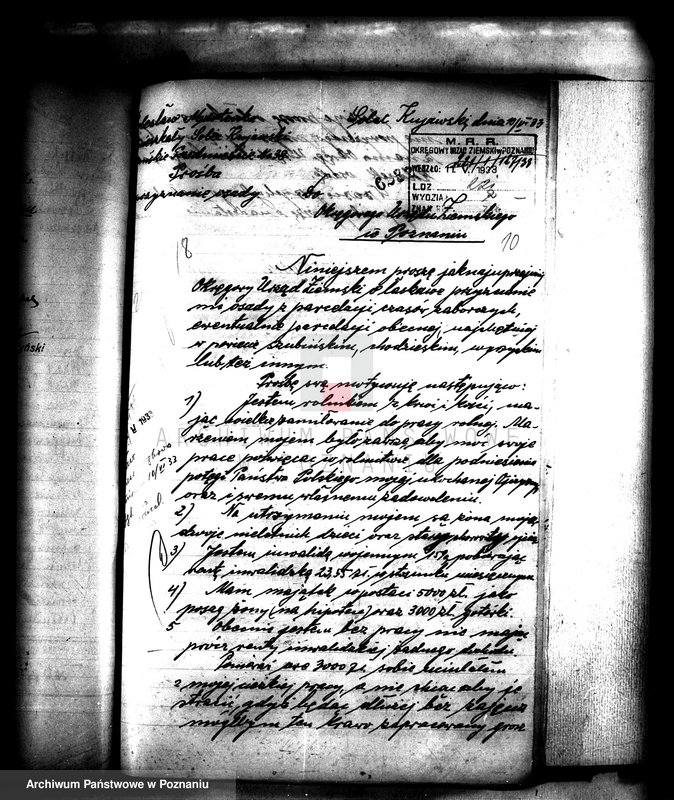 Solec Kujawski, dnia 10/VI 33
Solec Kujawski
Prośba
M. R. R.
OKRĘGOWY URZĄD ZIEMSKI w POZNANIU
WESZŁO: 1933
L.DZ.
WYDZIAŁ
ZNAK
Do
Okręgowego Urzędu Ziemskiego
w Poznaniu
8
10
Niniejszem proszę jaknajuprzejmiej
Okręgowy Urząd Ziemski o łaskawe przyznanie
mi osady z parcelacji czasów zaborczych,
ewentualnie parcelacji obecnej, najchętniej
w powiecie szubińskim, chodzieskim, wyrzyskim
lub też innym.
Prośbę swą motywuję następująco:
1) Jestem rolnikiem z krwi i kości, ma-
jąc wielkie zamiłowanie do pracy rolnej. Ma-
rzeniem mojem było zawsze aby móc swoją
pracę poświęcać w rolnictwie dla podniesienia
potęgi Państwa Polskiego mojej ukochanej Ojczyzny
oraz i swemu własnemu zadowoleniu.
2) Na utrzymaniu mojem są żona moja,
dwoje nieletnich dzieci oraz stary
3) Jestem inwalidą wojennym pobierając
rentę inwalidzką 23,55 zł. w stosunku miesięcznym
4) Mam majątek w postaci 5000 zł. jako
posag żony (na hipotece) oraz 3000 zł. gotówki.
5 Obecnie jestem bez pracy nie mając
prócz renty inwalidzkiej żadnego dochodu.
Ponieważ 3000 zł. sobie uciułałem
z mojej ciężkiej pracy, a nie chciałby je
stracić, gdyż będąc dłużej bez zajęcia
mógłbym ten krwawo zapracowany grosz
ARCHIWUM PAŃSTWOWE
W POZNANIU
Archiwum Państwowe w Poznaniu